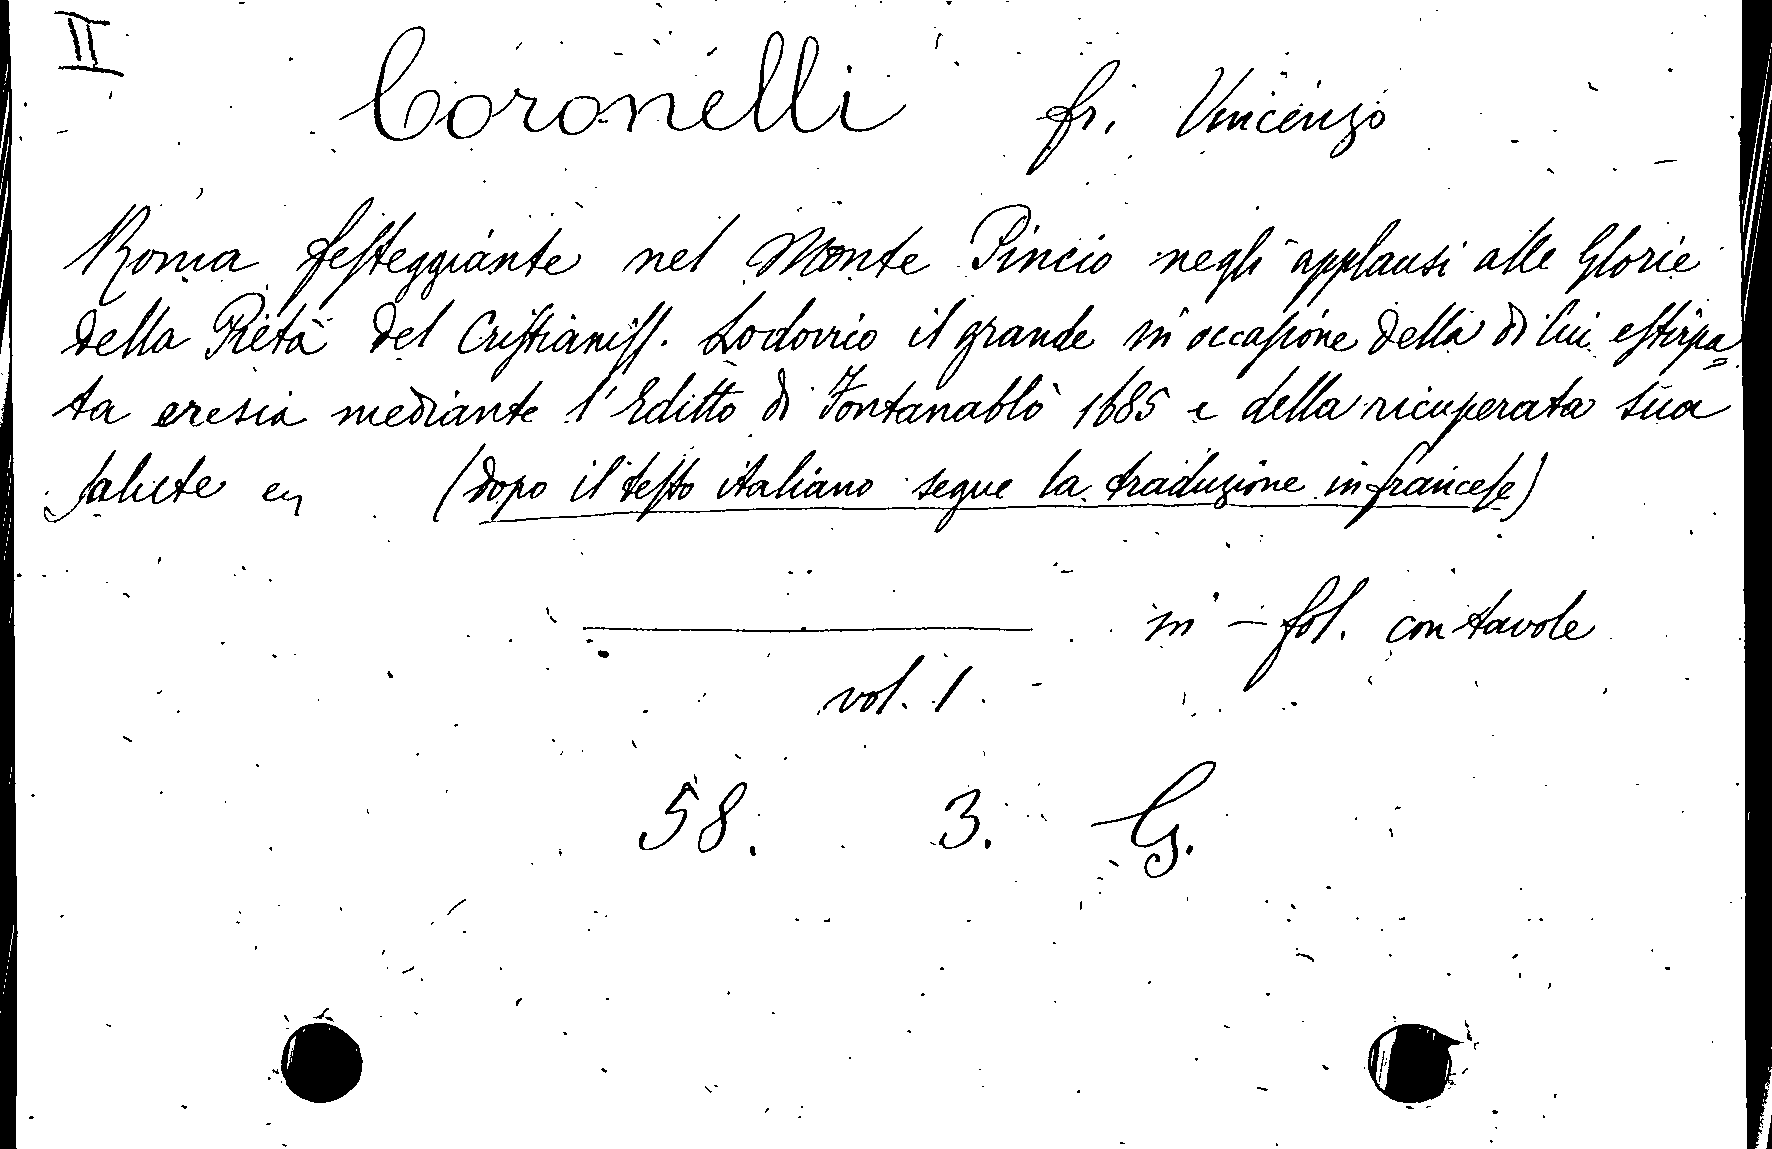 II
Coronelli fr. Vincenzo
Roma festeggiante nel Monte Pincio negli applausi alle Glorie
della Pietà del Cristianiss. Lodovico il grande in occasione della di lui estirpa=
ta eresia mediante l'Editto di Fontanablò 1685 e della ricuperata sua
salute (dopo il testo italiano segue la traduzione in francese)
in - fol. con tavole
vol. 1
58. 3. G.